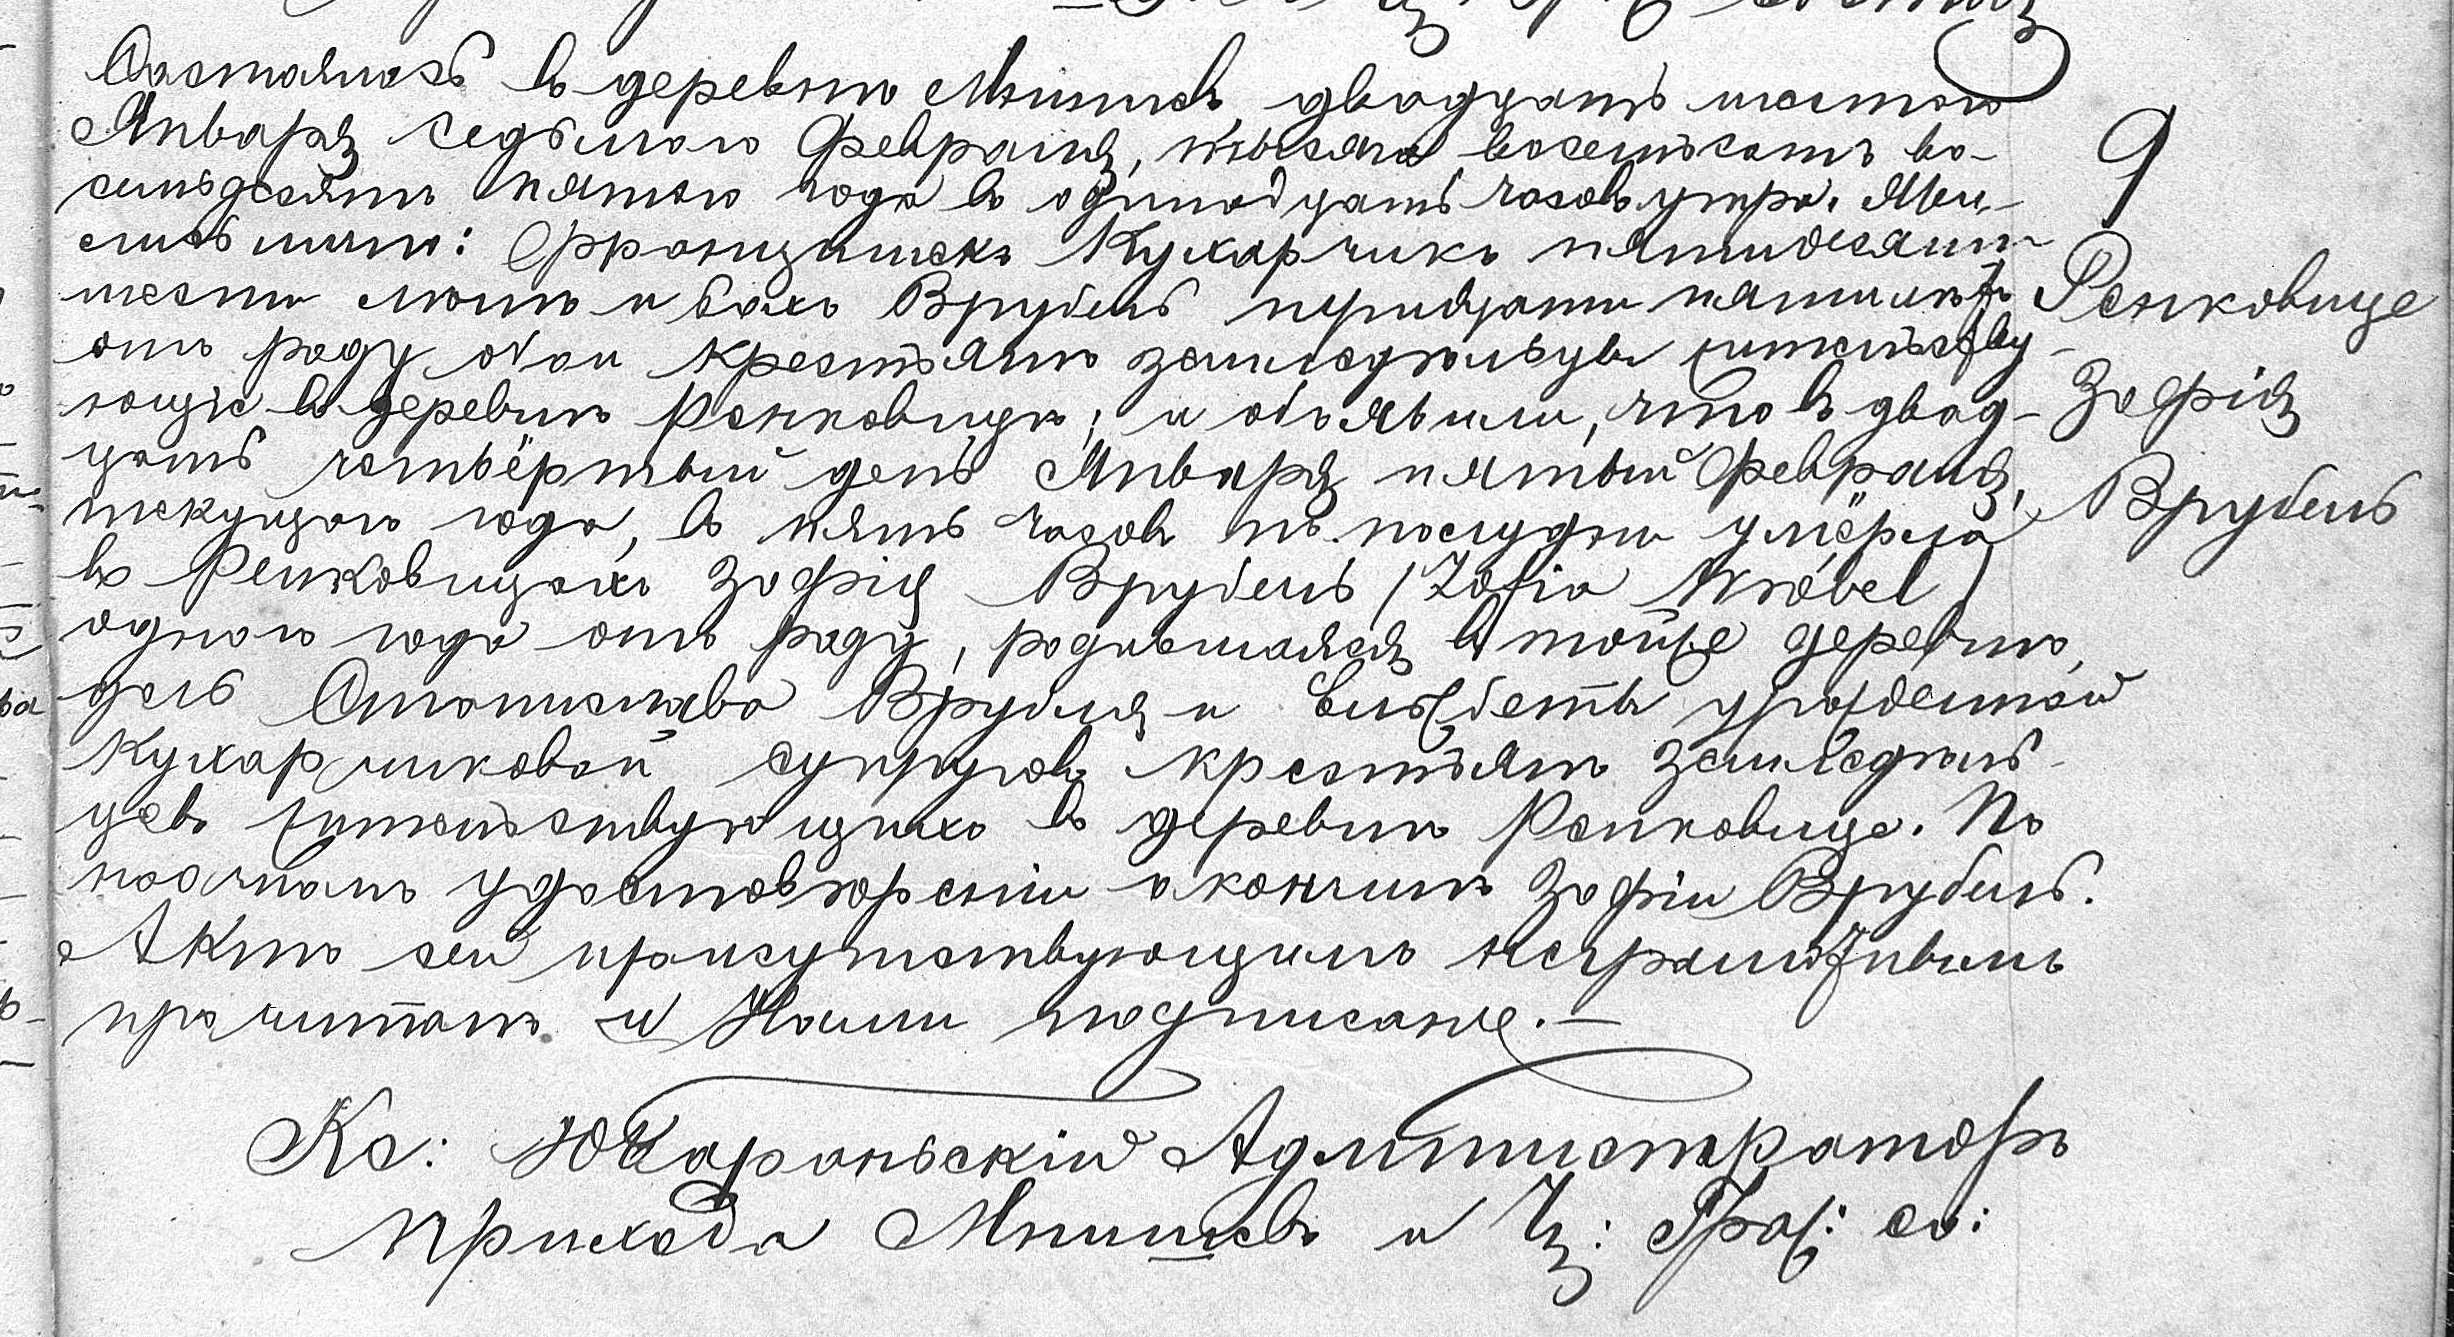 Состоялось в деревнѣ Мнишекъ двадцать шестого
Января седьмого Февраля, тысяча восемьсотъ во-
семьдесятъ пятого года в одинадцать часовъ утра. Яви-
лись лично: Францишекъ Кухарчикъ пятидесяти
шести лѣтъ и Врубель тридцати пяти лѣтъ
отъ роду оба крестьяне земледѣльцы жительству-
ющіе въ деревнѣ Ренковицѣ; и объявили, что въ двад-
цать четвёртый день Января пятый Февраля,
текущого года, въ пять часовъ по полудни умёрла
въ Ренковицахъ Зофія Врубель (Zofia Wróbel)
одного года отъ роду, родившаяся в тойже деревнѣ,
дочь Станислава Врубля и Елизбеты урожденной
Кухарчиковой супруговъ крестьянъ земледѣль-
цевъ жительствующихъ въ деревнѣ Ренковице. По
настномъ удостовѣреніи о кончинѣ Зофіи Врубель.
Актъ сей присутствующимъ неграмотнымъ
прочитанъ и Нами подписанъ. —
Кс: Администраторъ
прихода Мнишекъ и Ч: Граж: со:
9
Ренковице
Зофія
Врубель